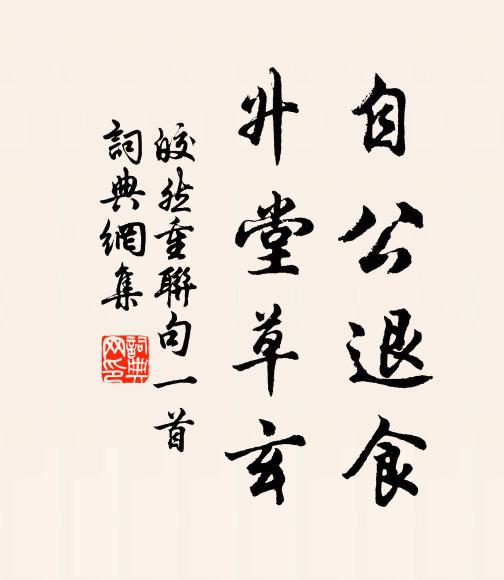 自公退食
升堂草玄
皎然重聯句一首
詞典網集
詞典
网印